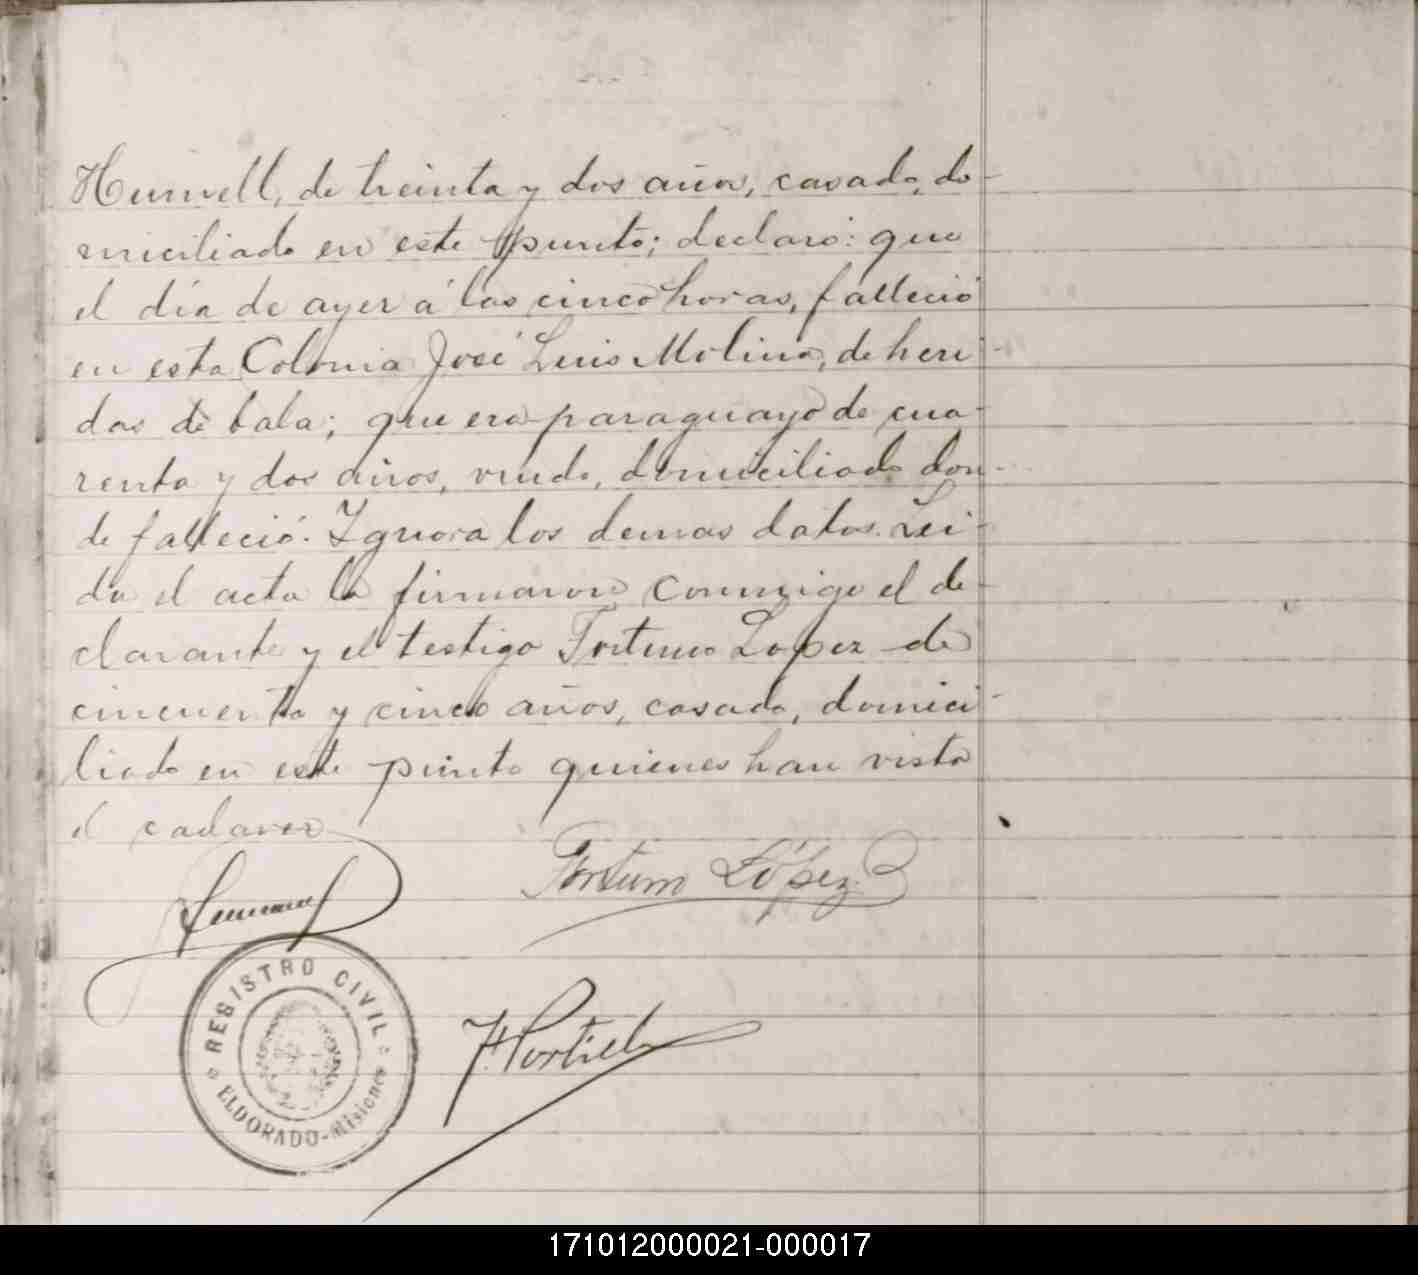 de treinta y dos años, casado, do-
miciliado en este punto; declaró: que
el día de ayer á las cinco horas, falleció
en esta Colonia José Luis Molina, de heri-
das de bala; que era paraguayo de cua-
renta y dos años, viudo, domiciliado don-
de falleció. Ignora los demas datos. Lei-
da el acta la firmaron conmigo el de-
clarante y el testigo Fortuno Lopez de
cincuenta y cinco años, casado, domici-
liado en este punto quienes han visto
el cadaver
Fortuno López
F. Portillo
REGISTRO CIVIL
ELDORADO-Misiones
171012000021-000017